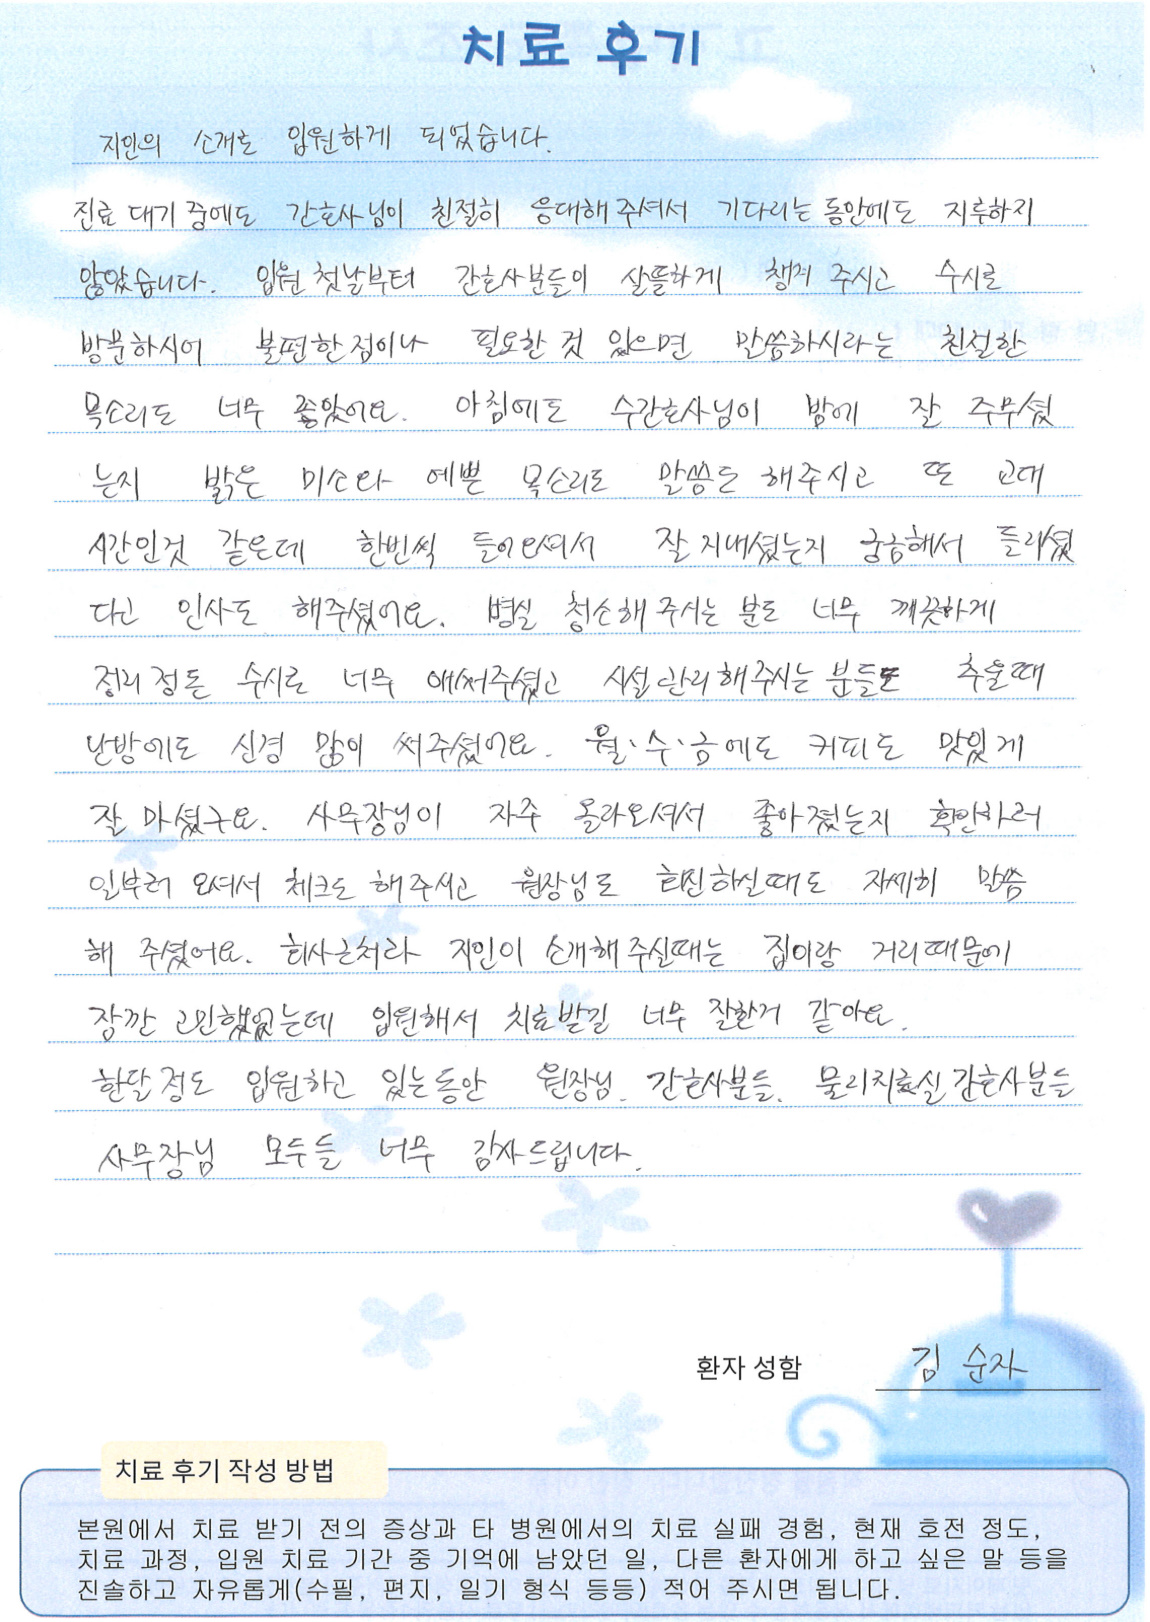 치료 후기
지인의 소개로 입원하게 되었습니다.
진료 대기 중에도 간호사님이 친절히 응대해 주셔서 기다리는 동안에도 지루하지
않았습니다. 입원 첫날부터 간호사분들이 살뜰하게 챙겨 주시고 수시로
방문하시어 불편한점이나 필요한 것 있으면 말씀하시라는 친절한
목소리도 너무 좋았어요. 아침에도 수간호사님이 밤에 잘 주무셨
는지 밝은 미소와 예쁜 목소리로 말씀도 해주시고 또 교대
시간인것 같은데 한번씩 들어오셔서 잘 지내셨는지 궁금해서 들리셨
다고 인사도 해주셨어요. 병실 청소해 주시는 분도 너무 깨끗하게
정리정돈 수시로 너무 애써주셨고 시설관리해주시는 분들도 추울때
난방에도 신경 많이 써주셨어요. 월·수·금에도 커피도 맛있게
잘 마셨구요. 사무장님이 자주 올라오셔서 좋아졌는지 확인하러
일부러 오셔서 체크도 해주시고 원장님도 회진하실때도 자세히 말씀
해 주셨어요. 회사근처라 지인이 소개해주실때는 집이랑 거리때문에
잠깐 고민했었는데 입원해서 치료받길 너무 잘한거 같아요.
한달정도 입원하고 있는동안 원장님. 간호사분들. 물리치료실 간호사분들
사무장님 모두들 너무 감사드립니다.
환자 성함 김 순자
치료 후기 작성 방법
본원에서 치료 받기 전의 증상과 타 병원에서의 치료 실패 경험, 현재 호전 정도,
치료 과정, 입원 치료 기간 중 기억에 남았던 일, 다른 환자에게 하고 싶은 말 등을
진솔하고 자유롭게(수필, 편지, 일기 형식 등등) 적어 주시면 됩니다.